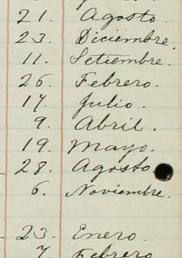 21. Agosto.
23. Diciembre.
11. Setiembre.
26. Febrero.
17. Julio.
9. Abril.
19. Mayo.
28. Agosto
6. Noviembre.
23. Enero.
7. Febrero